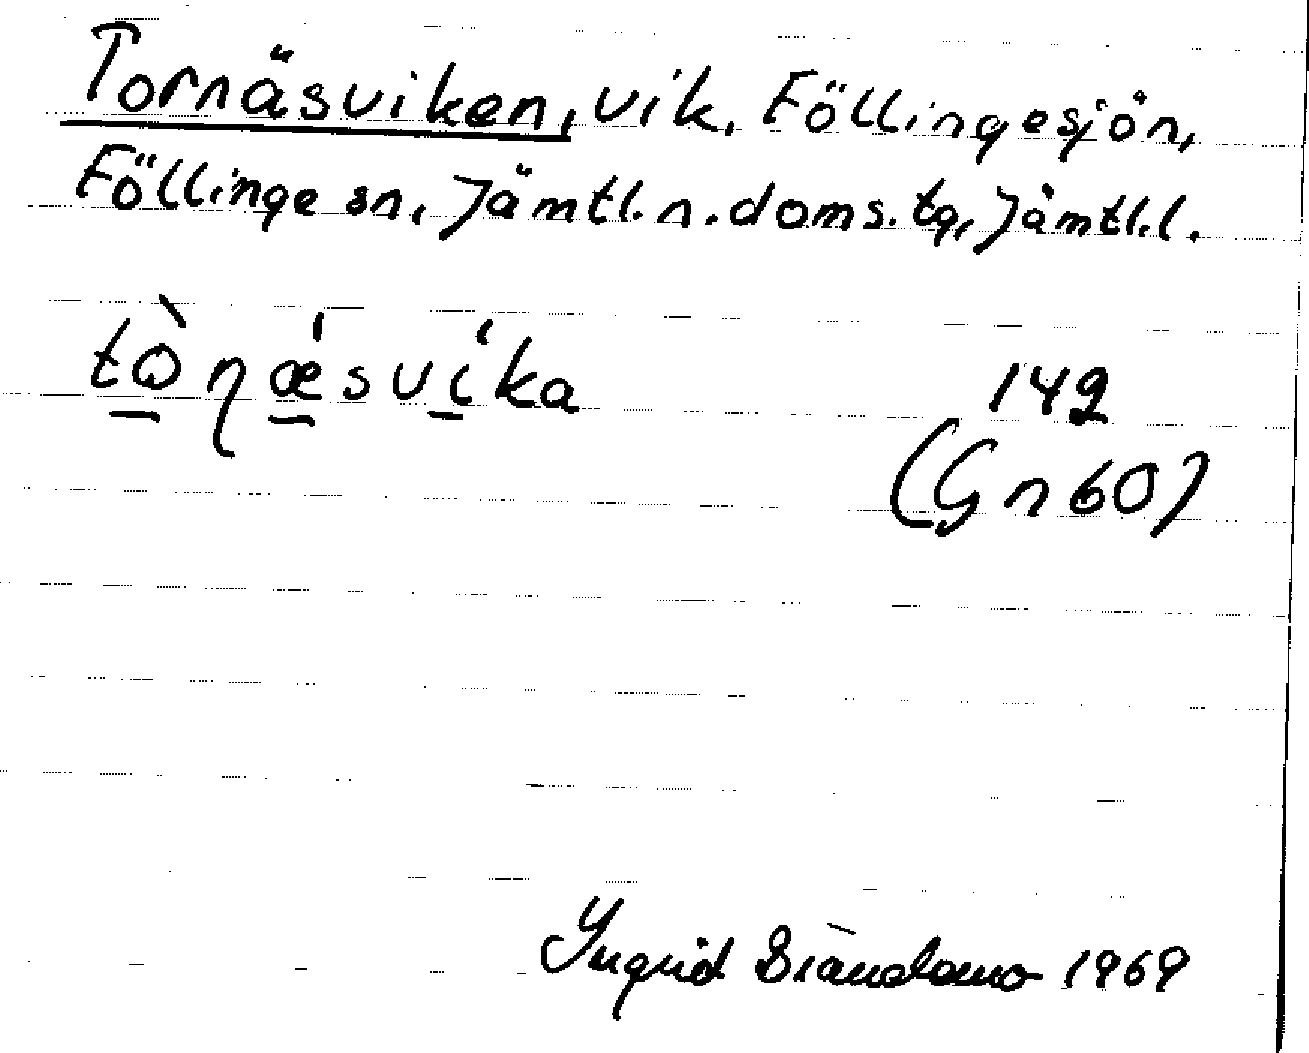 Tornäsviken, vik, Föllingesjön,
Föllinge sn, Jämtl. n. doms. tg, Jämtl. l.
tò̱ɳǽ̱svi̱ka
142
(Gn60)
Ingrid 1969